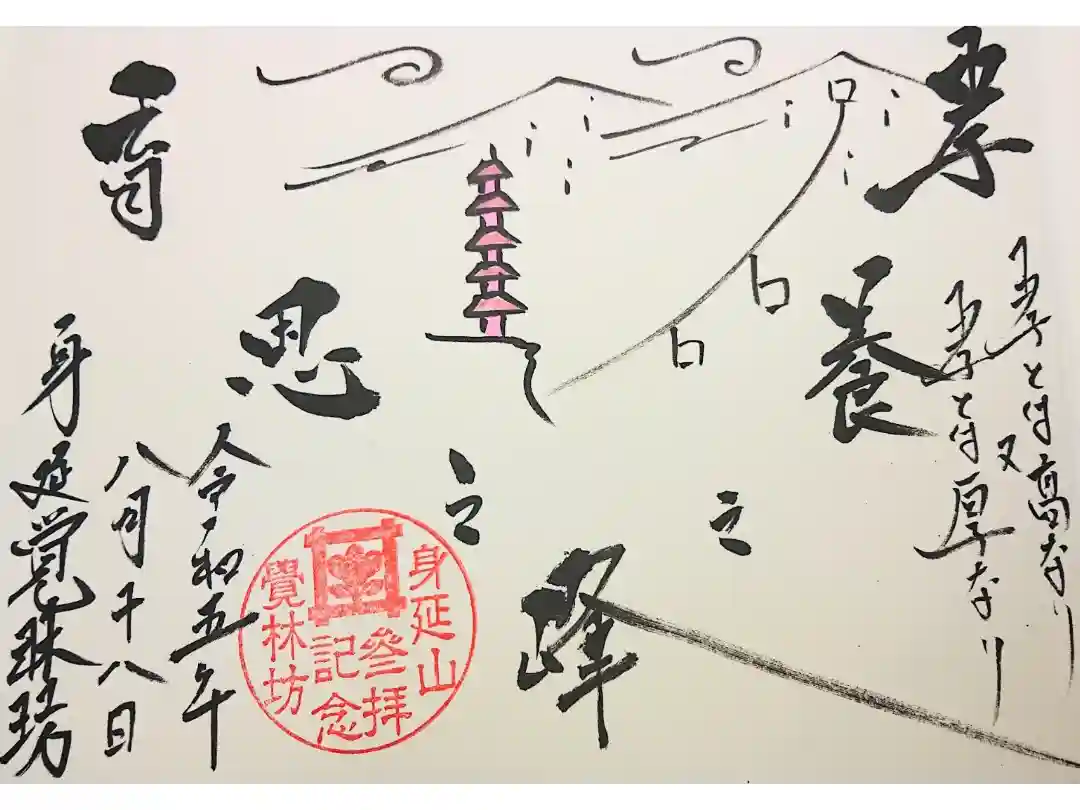 孝とは高なり
又
孝とは厚なり
孝養之
峰
育恩之
令和五年
八月十八日
身延覚林坊
身延山
叅拝
記念
覺林坊